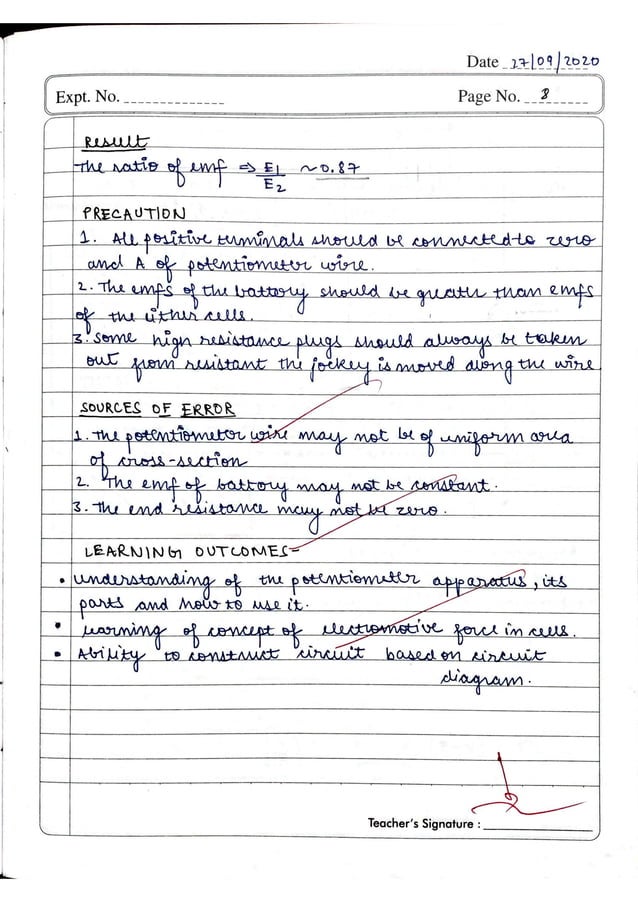 Date 27/09/2020
Expt. No.
Page No. 8
Result
The ratio of emf ⇒ E1/E2 ~0.87
PRECAUTION
1. All positive terminals should be connected to zero
and A of potentiometer wire.
2. The emfs of the battery should be greath than emfs
of the uither cells.
3. some high resistance plugs should always be taken
out from resistant the jockey is moved along the wire
SOURCES OF ERROR
1. The potentiometer wire may not be of uniform area
of cross-section
2. The emf of battery may not be constant.
3. The end resistance may not be zero.
LEARNING OUTCOMES-
• understanding of the potentiometer apparatus, its
parts and how to use it.
• learning of concept of electromotive force in cells.
• Ability to construct circuit based on circuit
diagram.
Teacher's Signature :